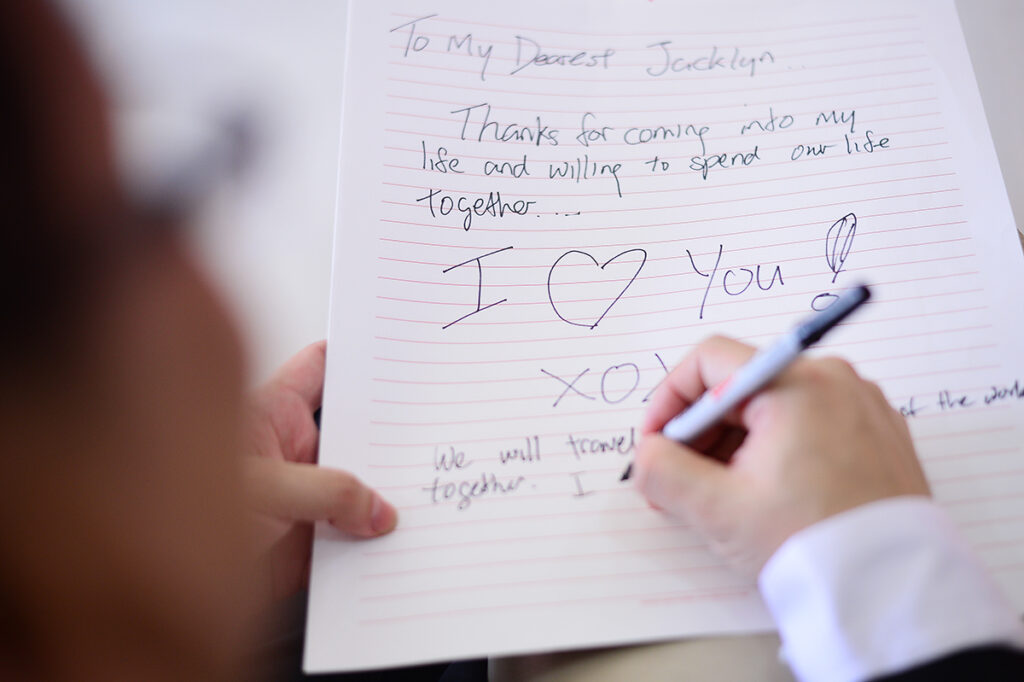 To My Dearest Jacklyn..
Thanks for coming into my
life and willing to spend our life
together....
I ♡ You!
XOX
We will travel of the world
together. I